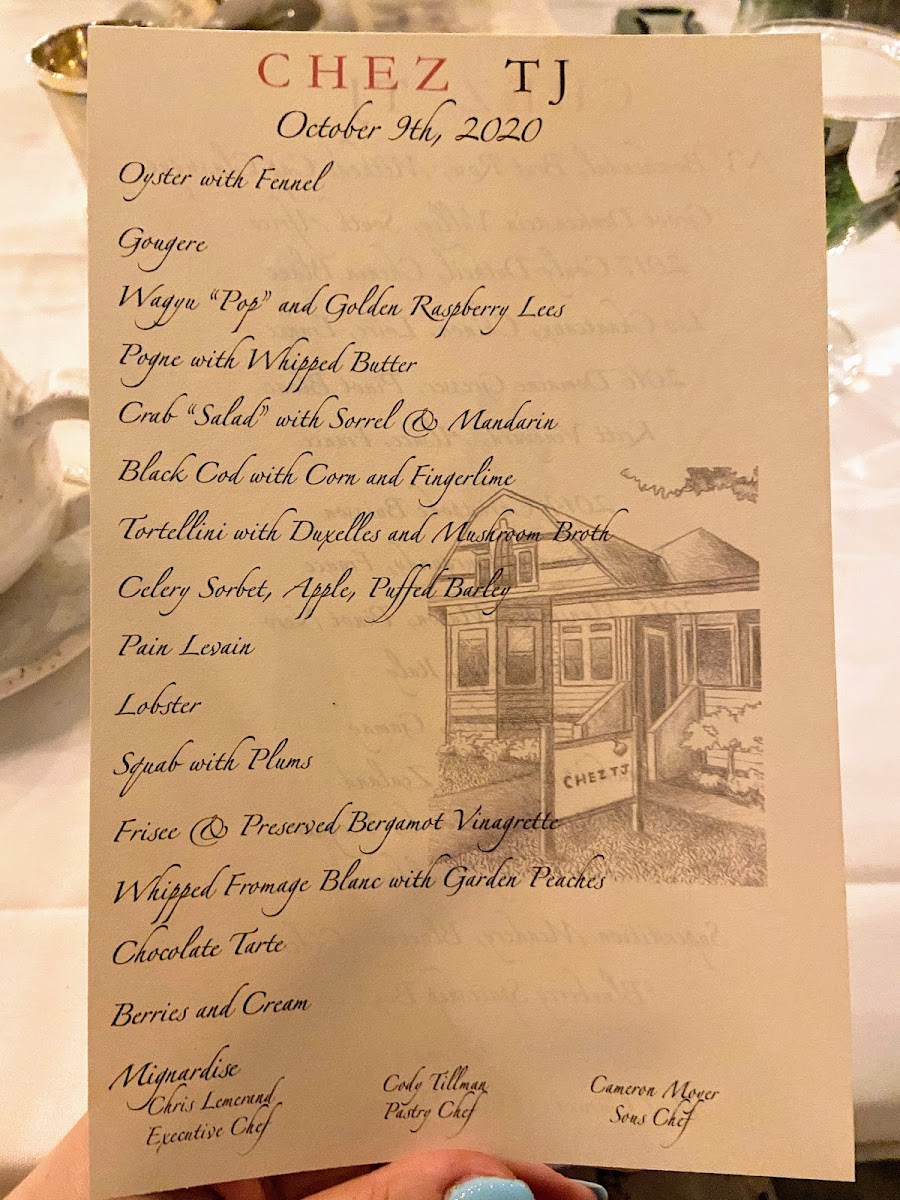 CHEZ TJ
October 9th, 2020
Oyster with Fennel
Gougere
Wagyu "Pop" and Golden Raspberry Lees
Pogne with Whipped Butter
Crab "Salad" with Sorrel & Mandarin
Black Cod with Corn and Fingerlime
Tortellini with Duxelles and Mushroom Broth
Celery Sorbet, Apple, Puffed Barley
Pain Levain
Lobster
CHEZ TJ
Squab with Plums
Frisee & Preserved Bergamot Vinagrette
Whipped Fromage Blanc with Garden Peaches
Chocolate Tarte
Berries and Cream
Mignardise
Chris Lemerand
Executive Chef
Cody Tillman
Pastry Chef
Cameron Moyer
Sous Chef